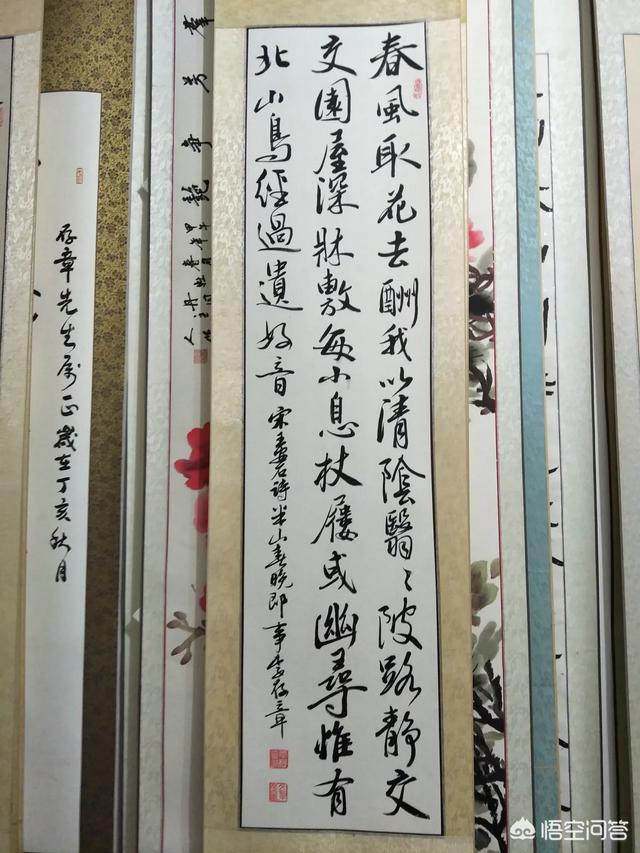 春風取花去酬我以清陰翳〻陂路靜交
交園屋深牀敷每小息杖屨或幽尋惟有
北山鳥經過遺好音
宋王安石詩半山春晚即事李存章
群芳爭艷
存章先生属正歲在丁亥秋月
悟空问答